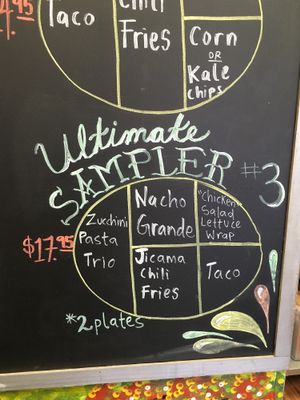 4.95
Taco
Chili
Fries
Corn
OR
Kale
chips
Ultimate
SAMPLER #3
$17.95
Zucchini
Pasta
Trio
Nacho
Grande
"Chicken"
Salad
Lettuce
Wrap
Jicama
Chili
Fries
Taco
*2 plates